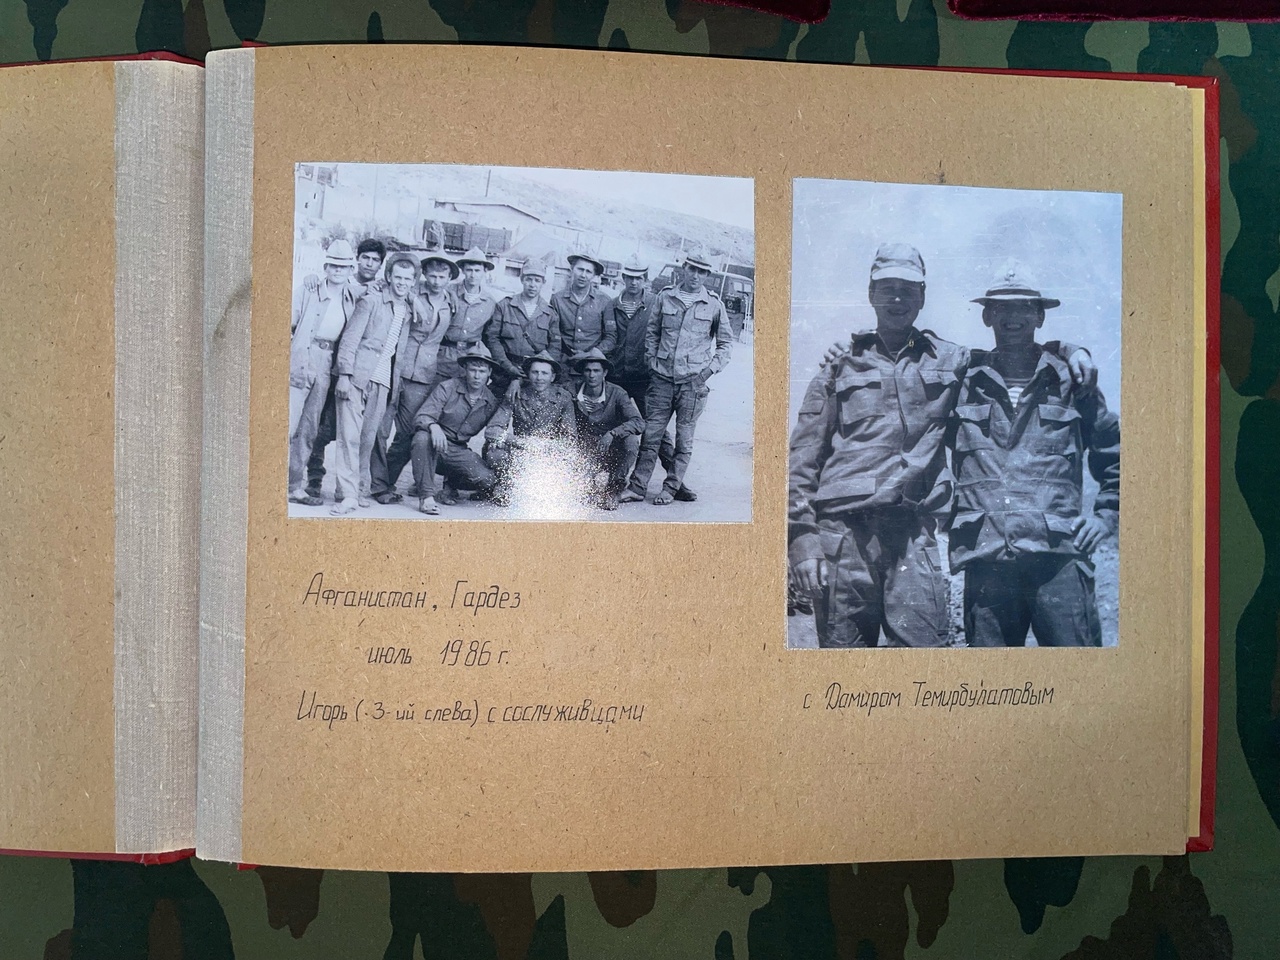 Афганистан, Гардез
июль 1986 г.
Игорь (3-ий слева) с сослуживцами
с Дамиром Темирбулатовым